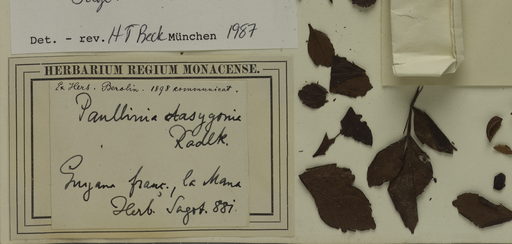 Det. - rev. H T Beck München 1987
HERBARIUM REGIUM MONACENSE.
Ex Herb. Berolin. 1898 communicat.
Paullinia dasygonia
Radlk.
Guyana franç., la Mana
Herb. Sagot. 881.